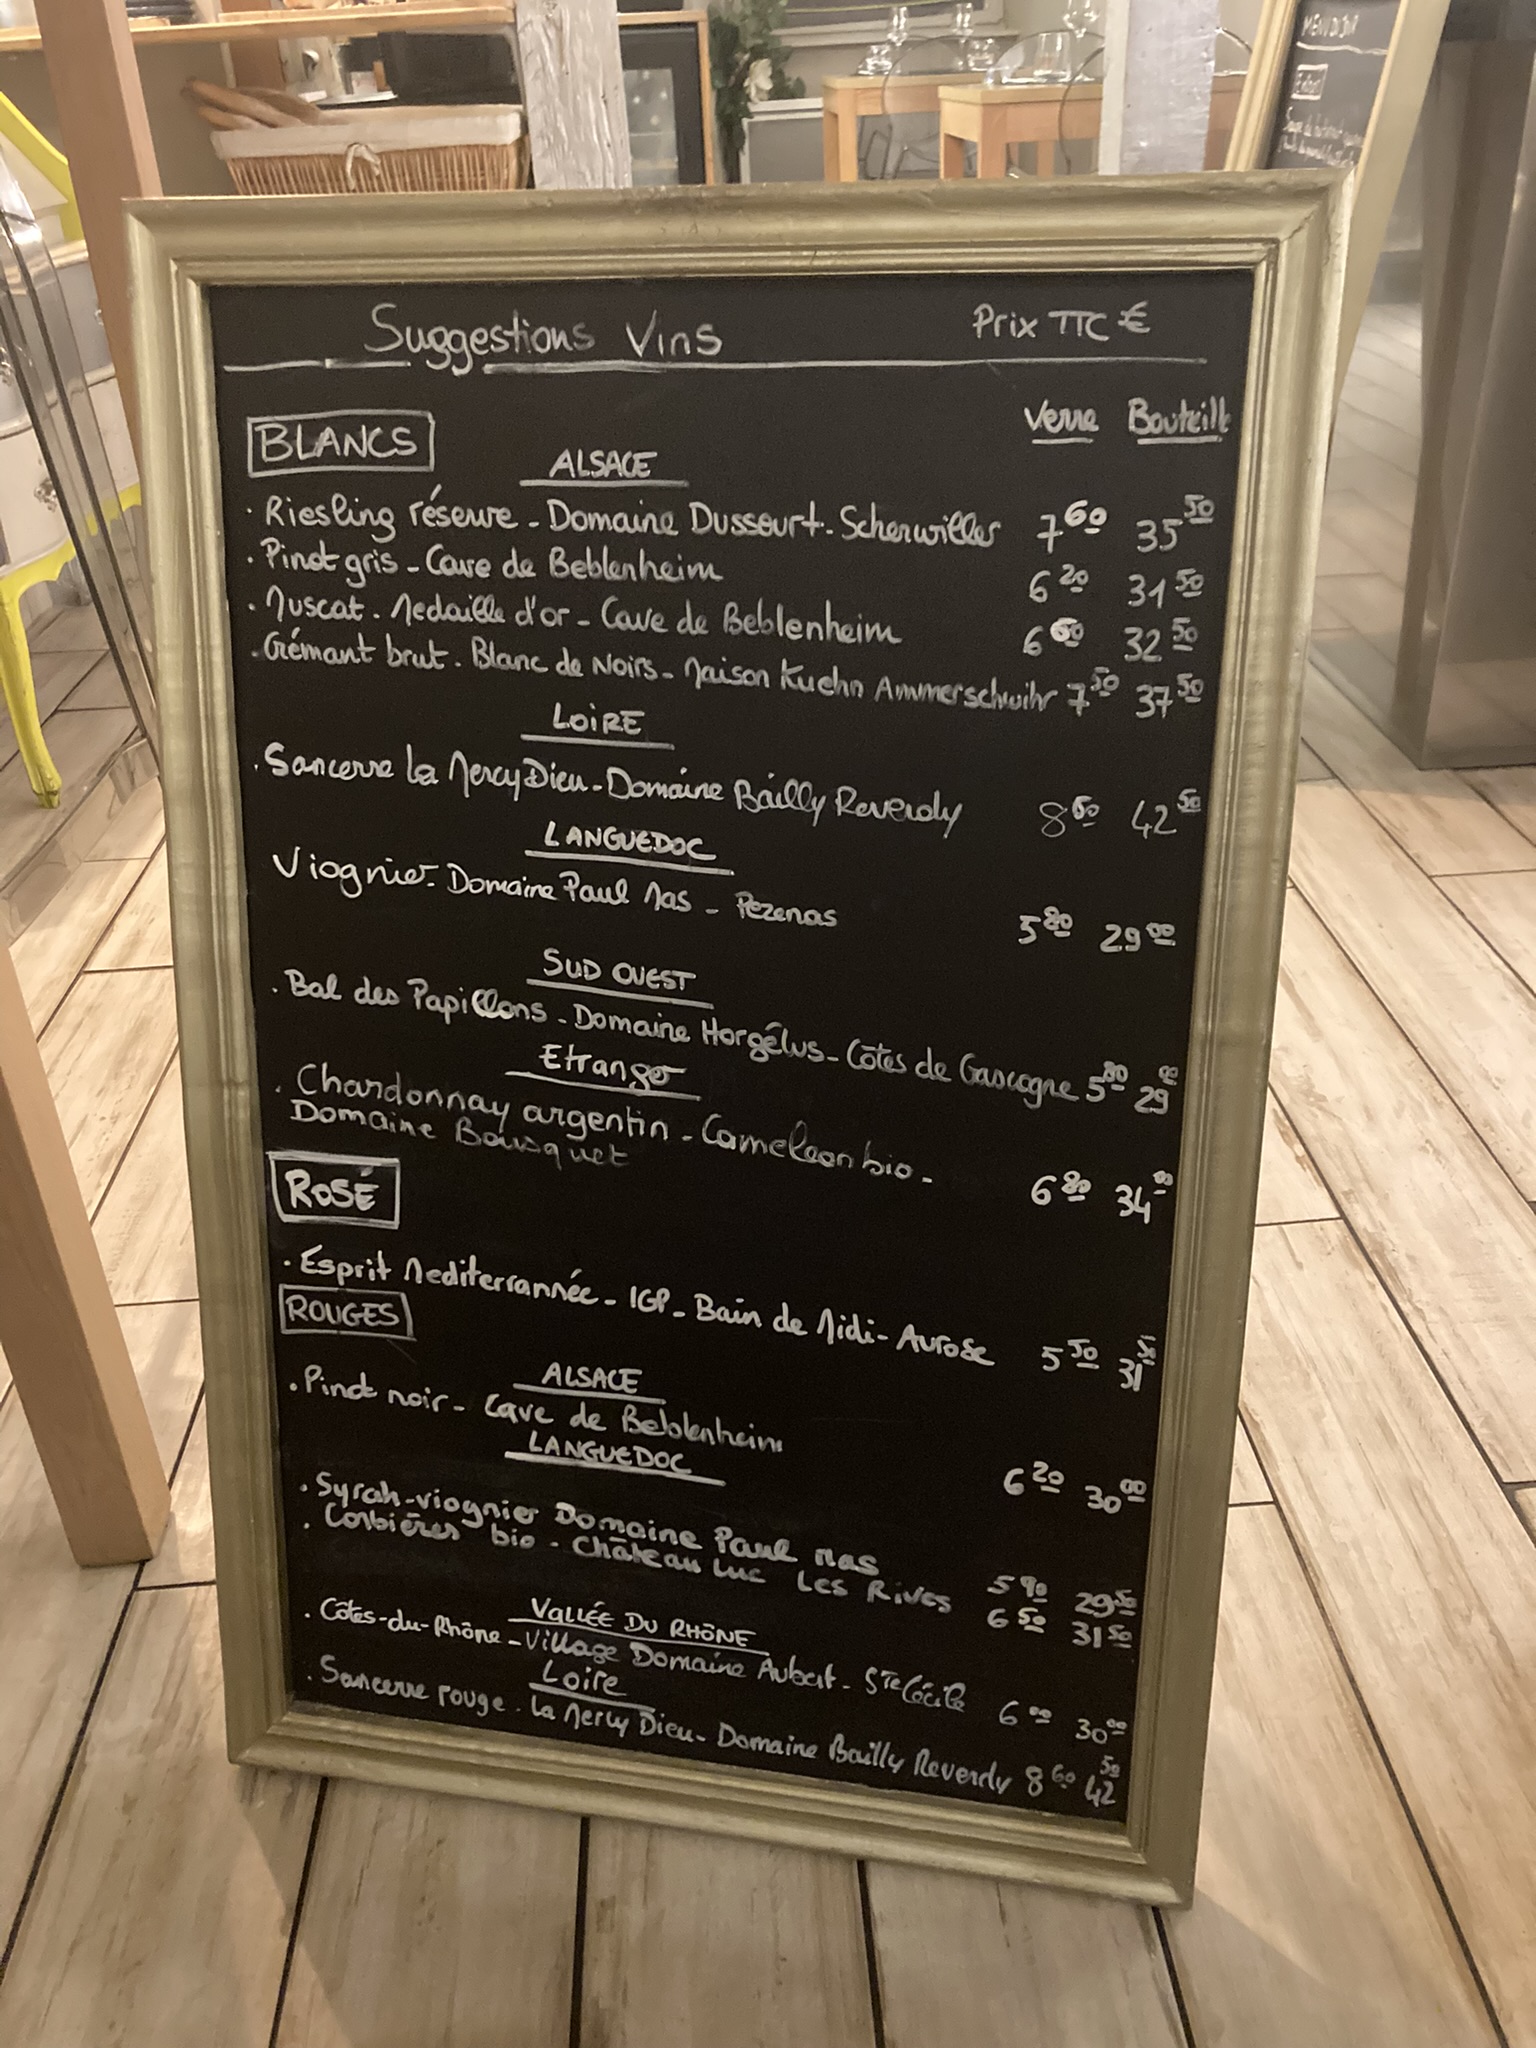 Suggestions Vins Prix TTC €
Verre Bouteille
BLANCS
ALSACE
· Riesling réserve - Domaine Dussourt - Scherwiller 7 60 35 50
· Pinot gris - Cave de Beblenheim 6 20 31 50
· Muscat - Medaille d'or - Cave de Beblenheim 6 60 32 50
· Crémant brut - Blanc de Noirs - Maison Kuehn Ammerschwihr 7 50 37 50
LOIRE
· Sancerre La Mercy Dieu - Domaine Bailly Reverdy 8 60 42 50
LANGUEDOC
Viognier - Domaine Paul Mas - Pezenas 5 80 29 00
SUD OUEST
· Bal des Papillons - Domaine Horgêlus - Côtes de Gascogne 5 80 29 00
Etranger
· Chardonnay argentin - Cameleon bio - 6 80 34 00
Domaine Bousquet
ROSÉ
· Esprit Mediterrannée - IGP - Bain de Midi - Aurose 5 50 31 50
ROUGES
ALSACE
· Pinot noir - Cave de Beblenheim 6 20 30 00
LANGUEDOC
· Syrah-viognier Domaine Paul Mas 5 90 29 50
· Corbières bio - Château Luc Les Rives 6 50 31 50
VALLÉE DU RHÔNE
· Côtes-du-Rhône - Village Domaine Aubert - Ste Cécile 6 00 30 00
Loire
· Sancerre rouge - La Mercy Dieu - Domaine Bailly Reverdy 8 60 42 50
MENU DU